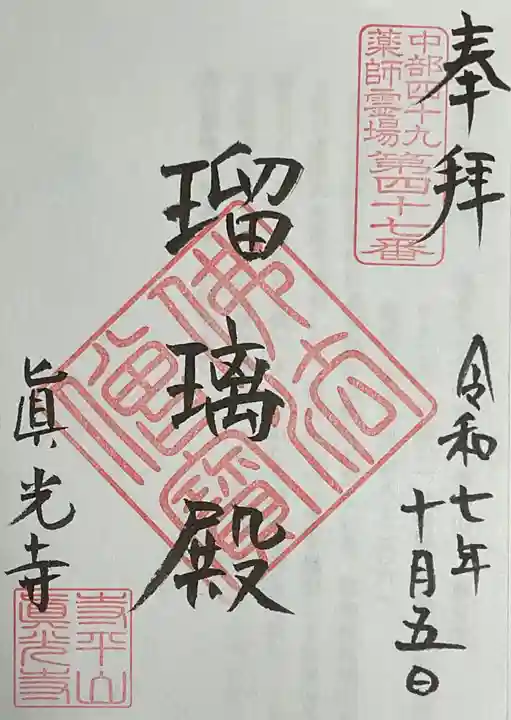 奉拝
中部四十九
薬師霊場第四十七番
令和七年
十月五日
瑠璃殿
佛法僧寶
眞光寺
眞光寺